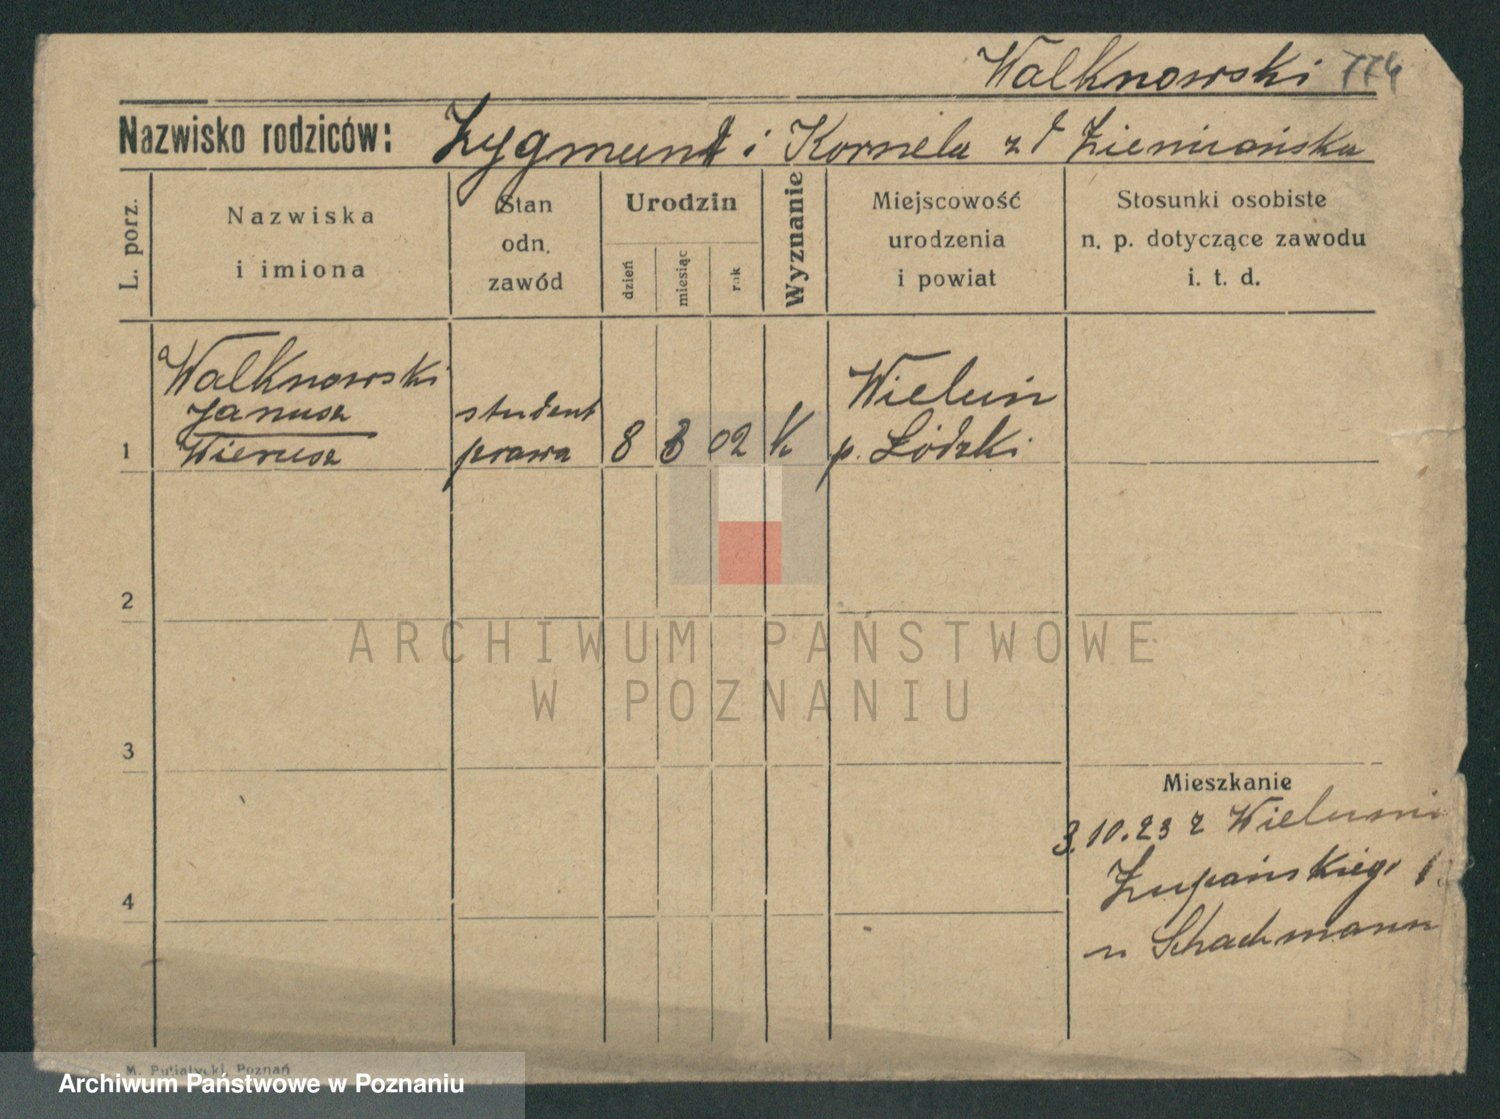 Walknowski 774
Nazwisko rodziców: Zygmunt i Kornela z d Ziemiańska
L. porz.
Nazwiska
i imiona
Stan
odn.
zawód
Urodzin
dzień
miesiąc
rok
Wyznanie
Miejscowość
urodzenia
i powiat
Stosunki osobiste
n. p. dotyczące zawodu
i. t. d.
Walknowski
Janusz
1 Wierusz
student
prawa
8
02
K
Wieluń
p. Łódzki
2
3
4
Mieszkanie
3.10.23 z Wielunia
Żupańskiego
u Schachmann
ARCHIWUM PAŃSTWOWE
W POZNANIU
M. Putiatycki, Poznań
Archiwum Państwowe w Poznaniu